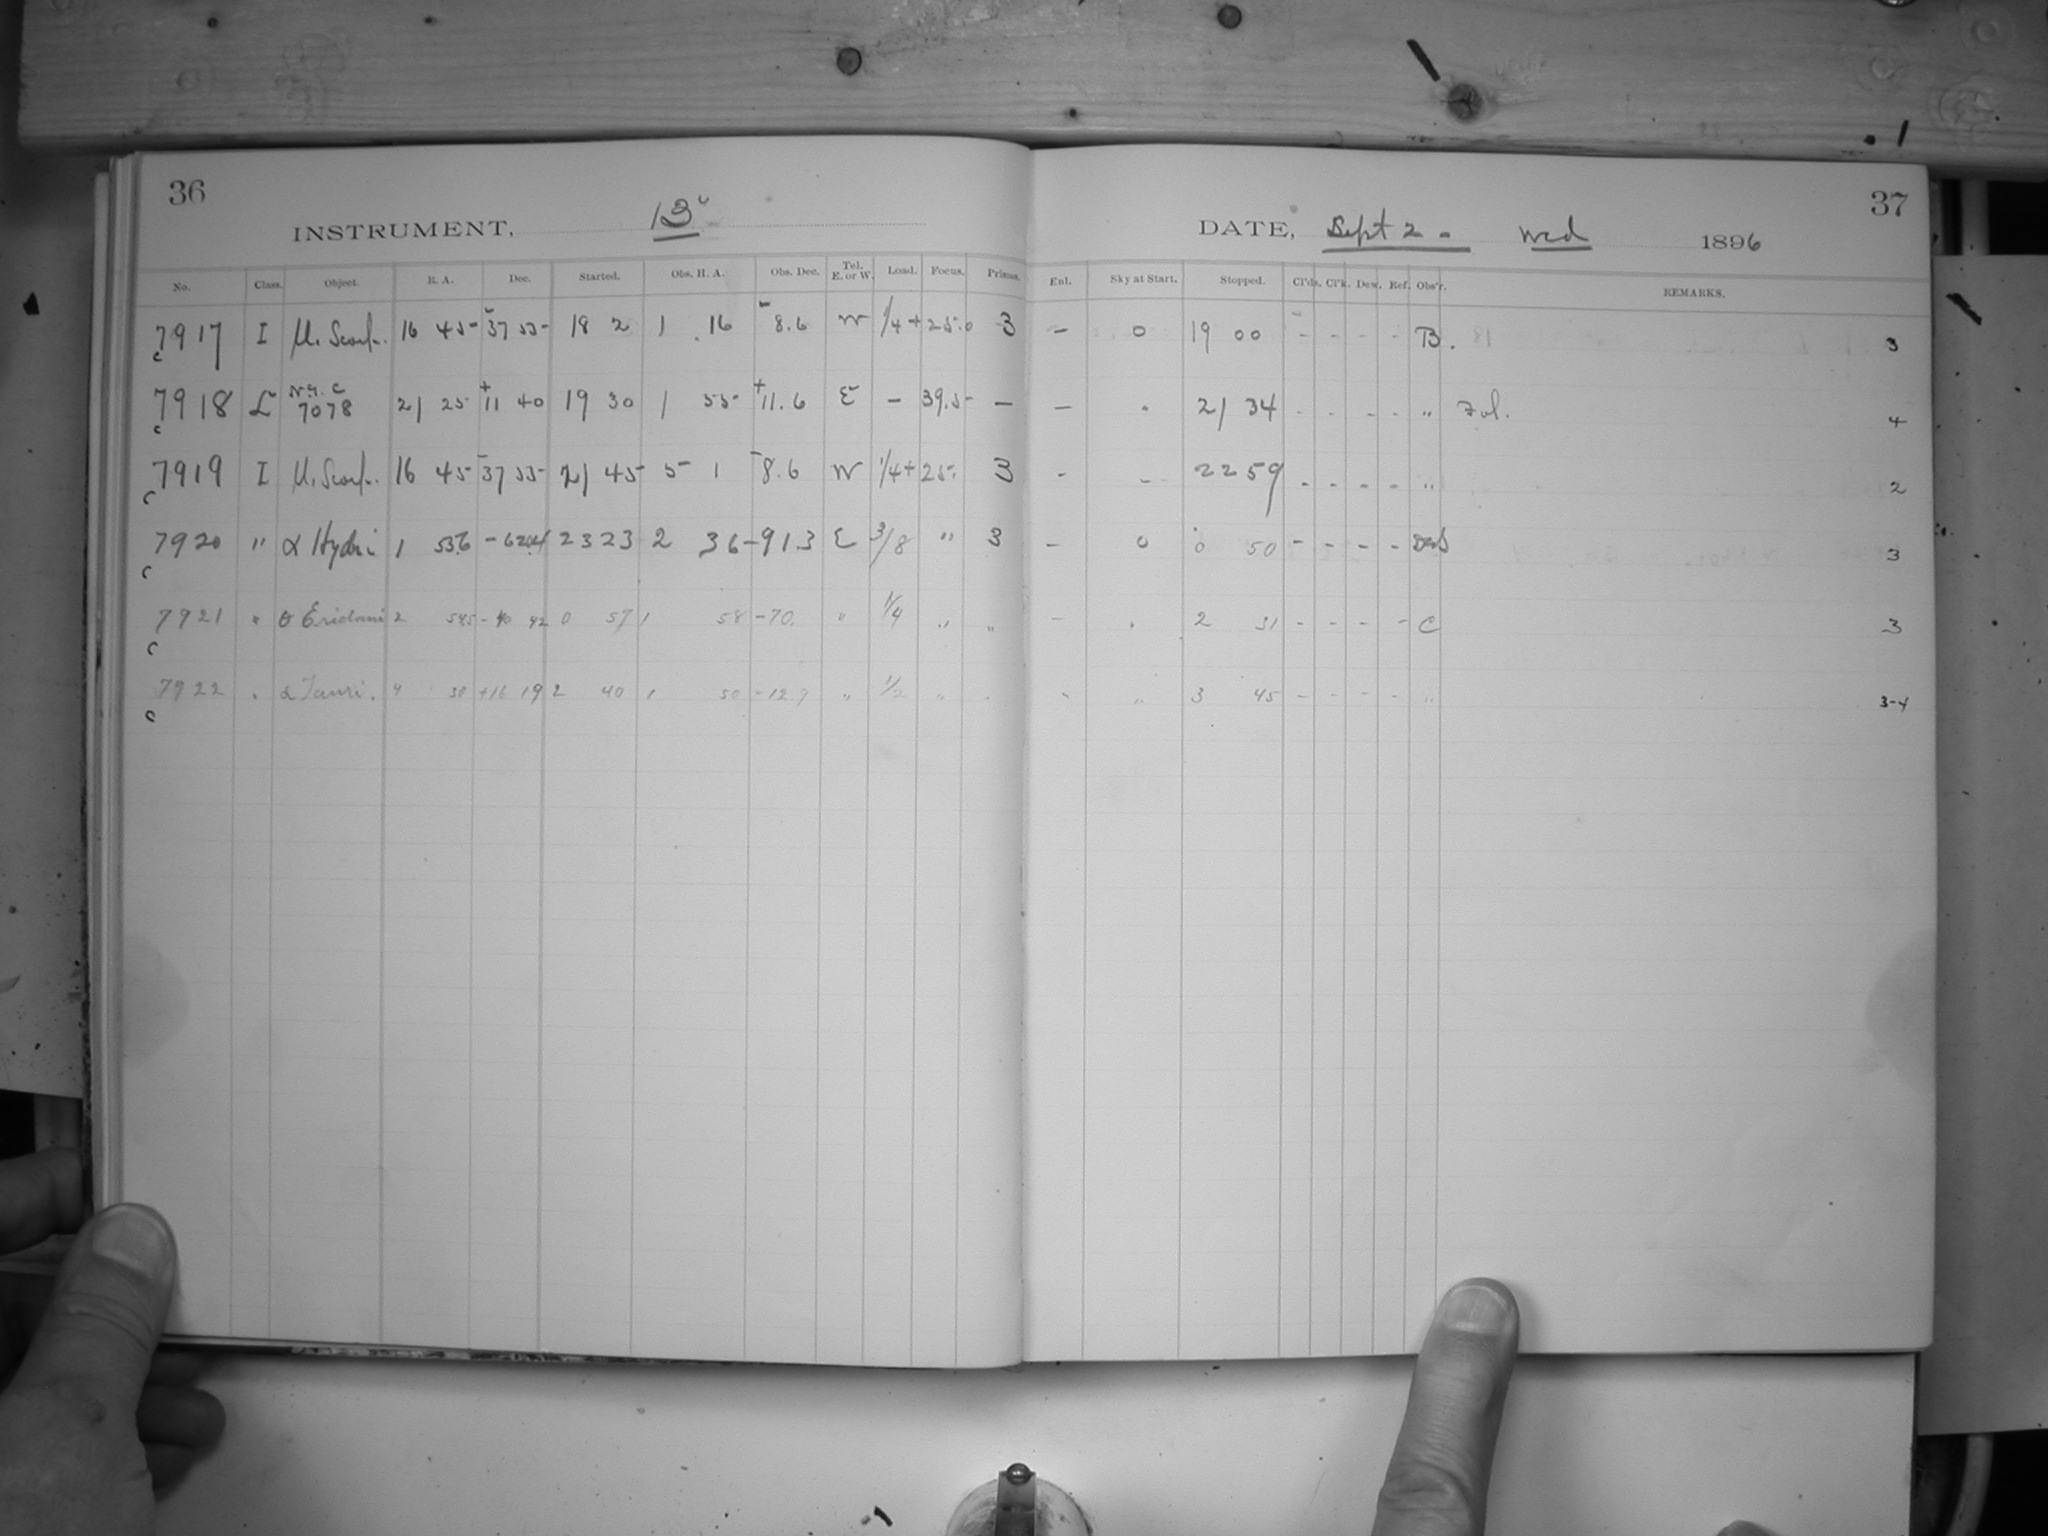 36
INSTRUMENT, 13"
No. Class. Object. R. A. Dec. Started. Obs. H. A. Obs. Dec. Tel. E. or W. Load. Focus. Prisms.
7917 I μ. Scorp. 16 45 -37 53 18 2 1 16 -8.6 W 1/4 +25.0 3
c
7918 L N.G.C 7078 21 25 +11 40 19 30 1 55 +11.6 E - 39.5 -
c
7919 I μ. Scorp. 16 45 -37 53 21 45 5 1 -8.6 W 1/4 +25. 3
c
7920 " α Hydri 1 53.6 -62 04 23 23 2 36 -91.3 E 3/8 " 3
c
7921 " θ Eridani 2 54.5 -40 42 0 57 1 58 -70. " 1/4 " "
c
7922 " α Tauri. 4 30 +16 19 2 40 1 50 -12.9 " 1/2 " "
c
37
DATE, Sept 2 - Wed 1896
Enl. Sky at Start. Stopped. Cl'ds. Cl'k. Dew. Ref. Obs'r. REMARKS.
- 0 19 00 - - - - B. 3
- " 21 34 - - - - " Fol. 4
- - 22 59 - - - - " 2
- 0 0 50 - - - - 3
- " 2 31 - - - - C 3
" " 3 45 - - - - " 3-4